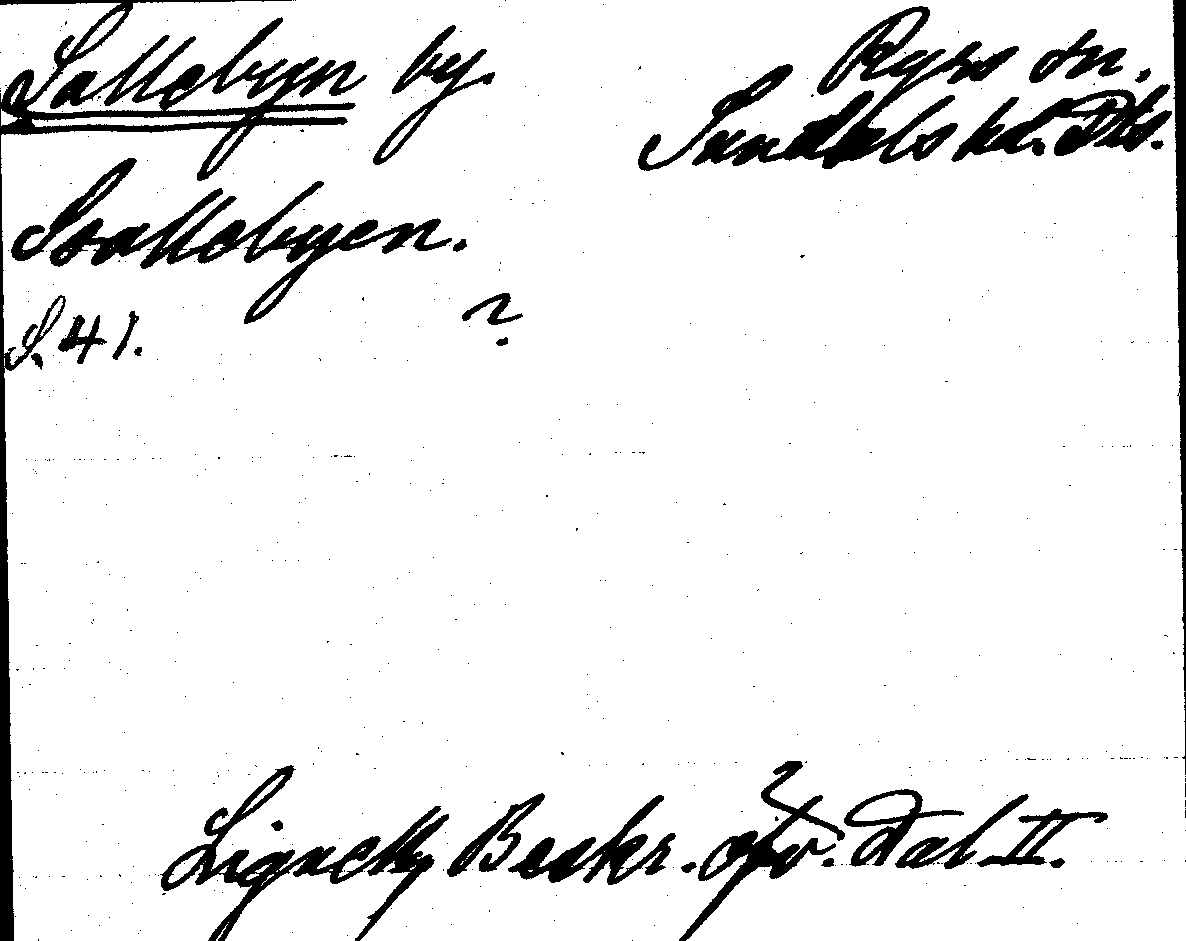 Sallebyn by.
Ryrs sn.
Sundals hd. Dls.
Ssallebyen.
S. 41. ?
Lignell, Beskr. öfv. Dal II.